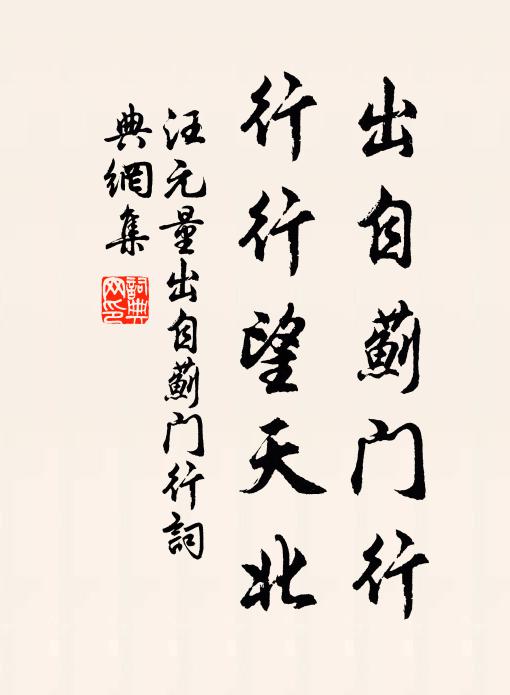 出自薊门行
行行望天北
汪元量出自薊门行詞
典網集
詞典
网印